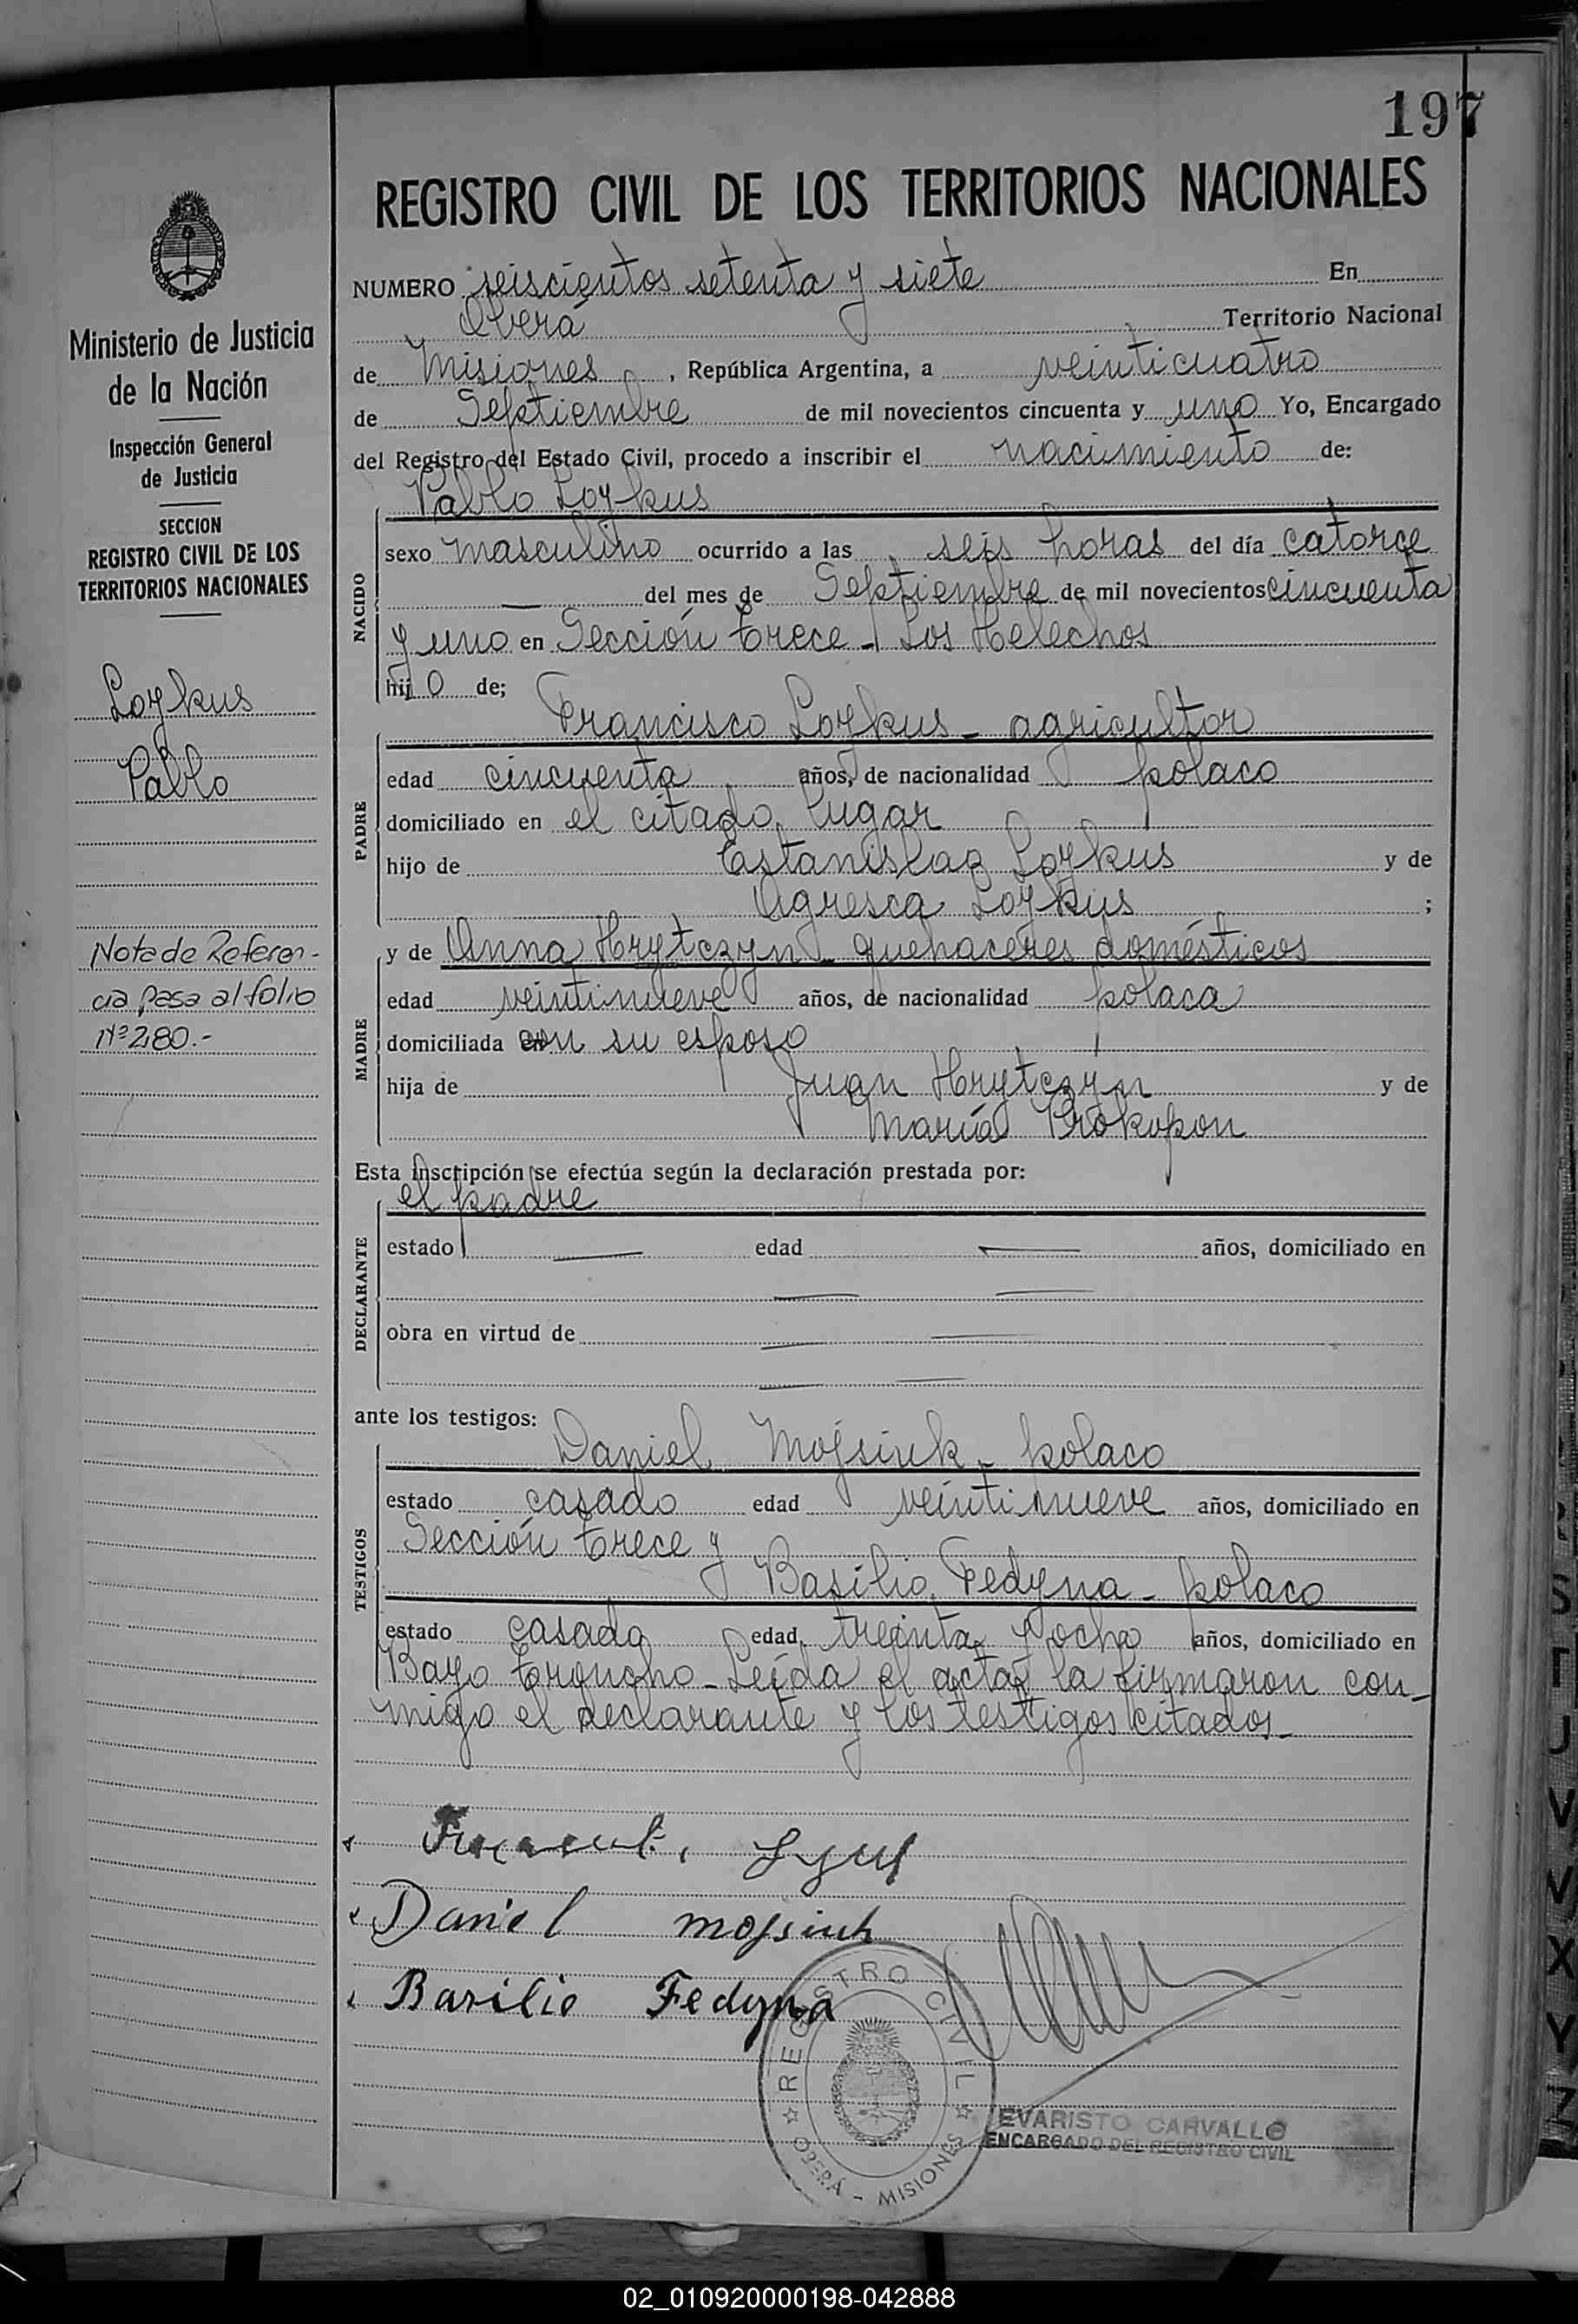 197
REGISTRO CIVIL DE LOS TERRITORIOS NACIONALES
Ministerio de Justicia
de la Nación
Inspección General
de Justicia
SECCION
REGISTRO CIVIL DE LOS
TERRITORIOS NACIONALES
Loykus
Pablo
Nota de Referen-
cia pasa al folio
Nº 280.-
NUMERO seiscientos setenta y siete En
Oberá Territorio Nacional
de Misiones, República Argentina, a veinticuatro
de Septiembre de mil novecientos cincuenta y uno Yo, Encargado
del Registro del Estado Civil, procedo a inscribir el nacimiento de:
Pablo Loykus
NACIDO
sexo masculino ocurrido a las seis horas del día catorce
del mes de Septiembre de mil novecientos cincuenta
y uno en Sección trece - Los Helechos
hijo de;
Francisco Loykus - agricultor
PADRE
edad cincuenta años, de nacionalidad polaco
domiciliado en el citado lugar
hijo de Estanislao Loykus y de
Agresca Loykus ;
y de Anna Hrytczyn - quehaceres domésticos
MADRE
edad veintinueve años, de nacionalidad polaca
domiciliada con su esposo
hija de Juan Hrytczyn y de
María Prokopon
Esta inscripción se efectúa según la declaración prestada por:
el padre
DECLARANTE
estado — edad — años, domiciliado en
— —
obra en virtud de — —
— —
ante los testigos:
Daniel Mojsiuk - polaco
TESTIGOS
estado casado edad veintinueve años, domiciliado en
Sección trece y
Basilio Fedyna - polaco
estado casado edad treinta y ocho años, domiciliado en
Bayo troncho - Leída el acta, la firmaron con-
migo el declarante y los testigos citados -
Daniel mojsiuk
Basilio Fedyna
REGISTRO CIVIL
OBERÁ - MISIONES
EVARISTO CARVALLO
ENCARGADO DEL REGISTRO CIVIL
R
S
T
U
V
X
Y
Z
02_010920000198-042888